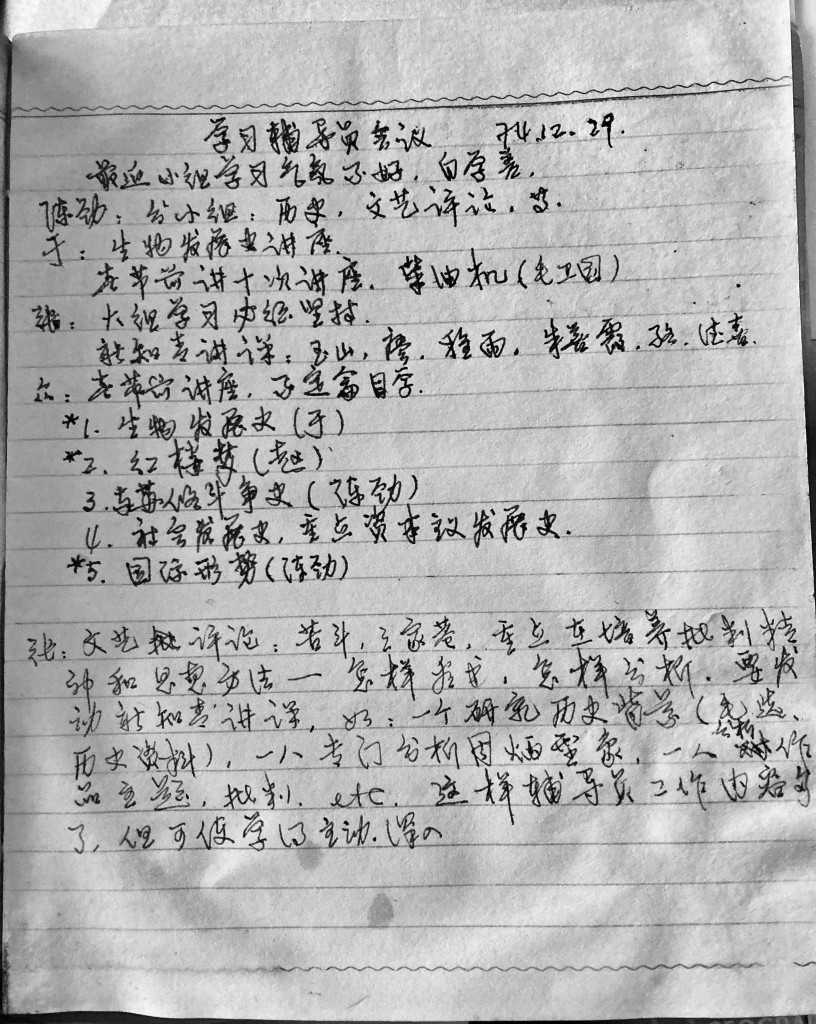 学习辅导员会议 74.12.29.
最近小组学习气氛不好，自学差，
陈劲：分小组：历史，文艺评论，等.
于：生物发展史讲座.
春节前讲十次讲座，柴油机（毛卫国）
张：大组学习必须坚持.
新知青讲课：玉山，廖，稚雨，朱善霞，
众：春节前讲座，不定篇自学.
*1. 生物发展史（于）
*2. 红楼梦（赵）
3. 儒法斗争史（陈劲）
4. 社会发展史，重点资本主义发展史.
*5. 国际形势（陈劲）
张：文艺评论：苦斗，三家巷，重点在培养批判精
神和思想方法—怎样看书，怎样分析. 要发
动新知青讲课，如：一个研究历史背景（毛选、
历史资料），一人专门分析周炳型象，一人分析作
品主题，批判. etc. 这样辅导员工作内容多
了，但可使学习主动.深入